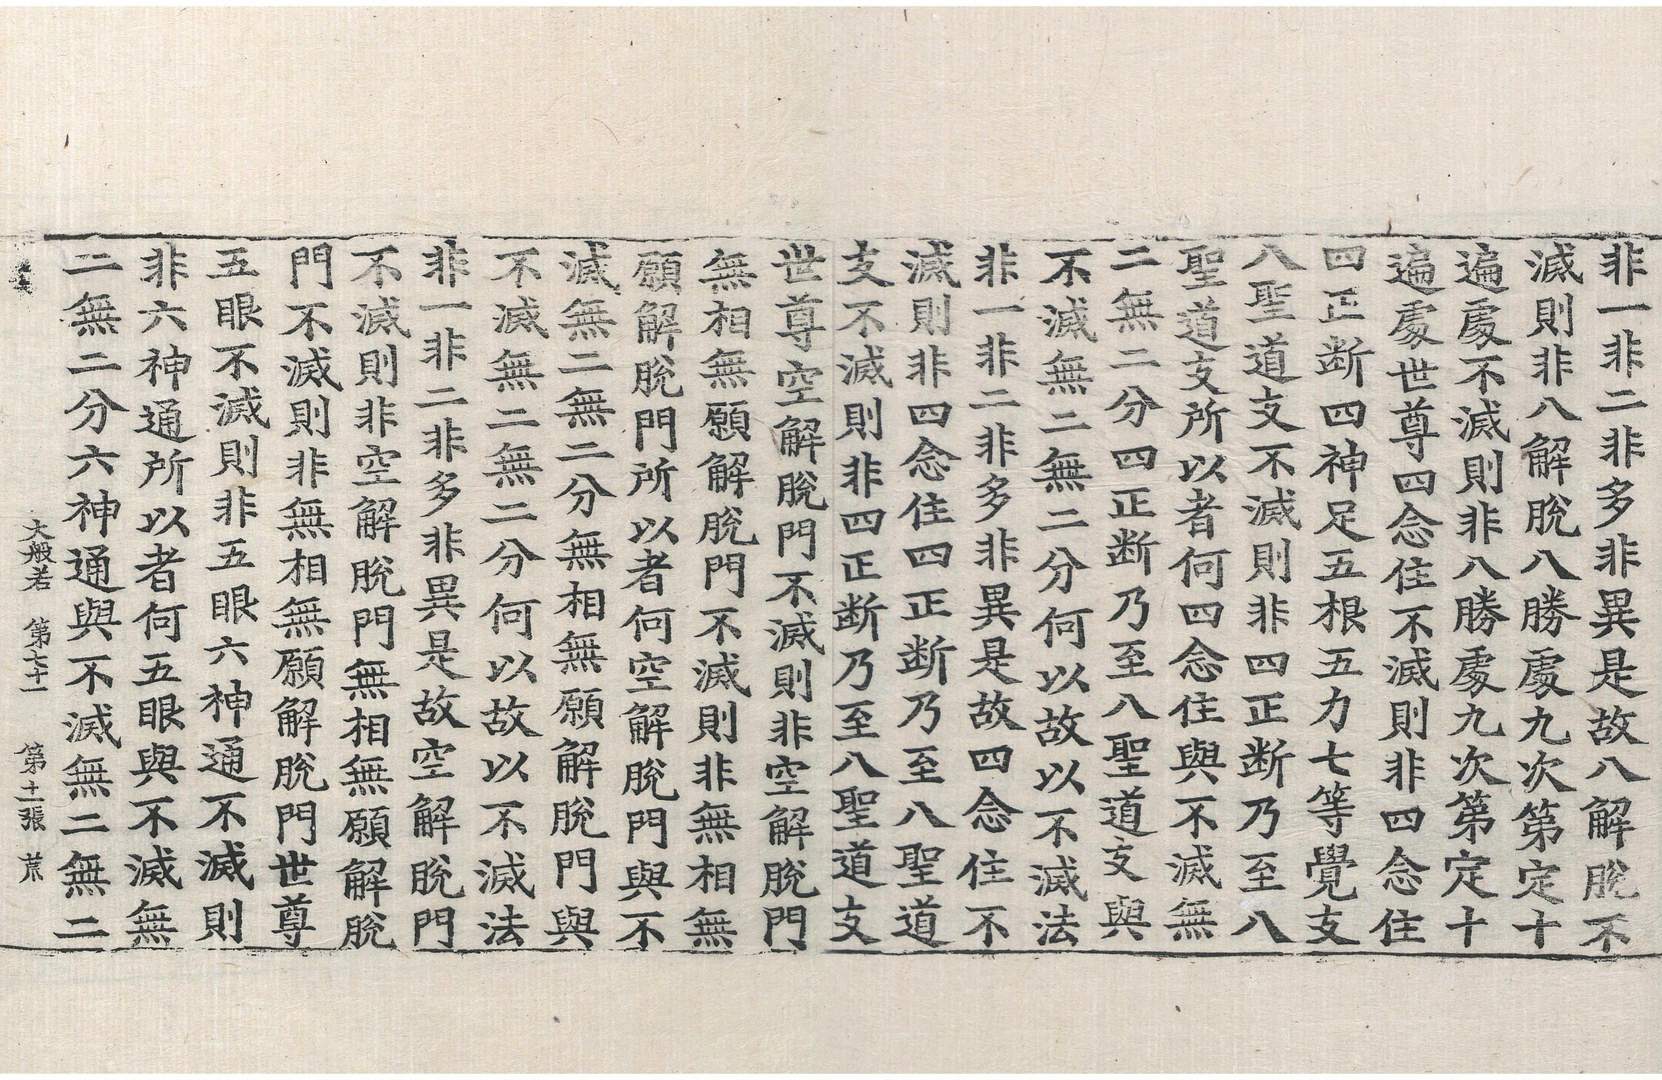 非一非二非多非異是故八解脫不
滅則非八解脫八勝處九次第定十
遍處不滅則非八勝處九次第定十
遍處世尊四念住不滅則非四念住
四正断四神足五根五力七等覺支
八聖道支不滅則非四正断乃至八
聖道支所以者何四念住與不滅無
二無二分四正断乃至八聖道支與
不滅無二無二分何以故以不滅法
非一非二非多非異是故四念住不
滅則非四念住四正断乃至八聖道
支不滅則非四正断乃至八聖道支
世尊空解脫門不滅則非空解脫門
無相無願解脫門不滅則非無相無
願解脫門所以者何空解脫門與不
滅無二無二分無相無願解脫門與
不滅無二無二分何以故以不滅法
非一非二非多非異是故空解脫門
不滅則非空解脫門無相無願解脫
門不滅則非無相無願解脫門世尊
五眼不滅則非五眼六神通不滅則
非六神通所以者何五眼與不滅無
二無二分六神通與不滅無二無二
大般若 第七十一 第十一張 荒